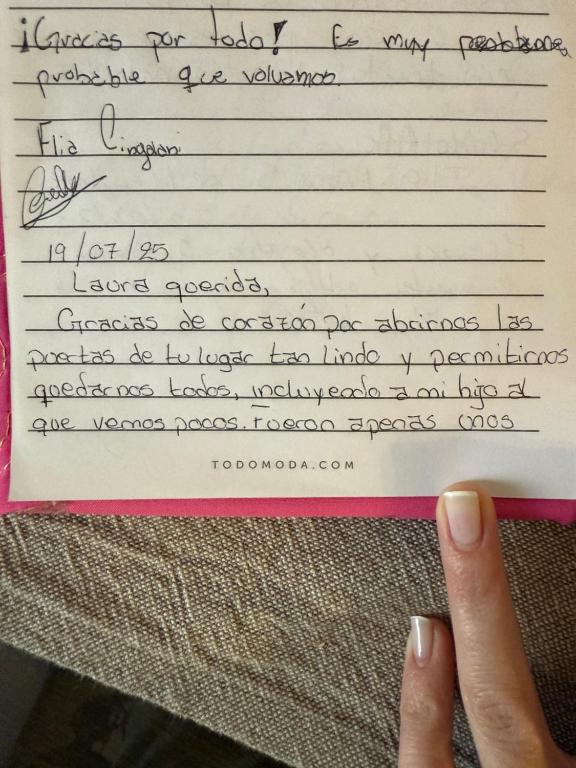 ¡Gracias por todo! Es muy
probable que volvamos.
Flia Cingolani
19/07/25
Laura querida,
Gracias de corazón por abrirnos las
puertas de tu lugar tan lindo y permitirnos
quedarnos todos, incluyendo a mi hijo al
que vemos pocos. Fueron apenas unos
TODOMODA.COM